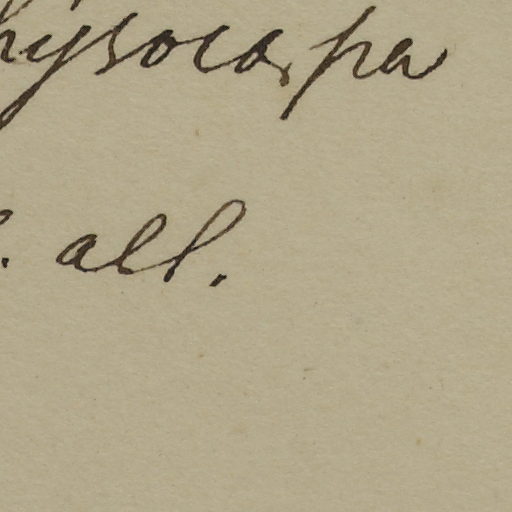 hysocarpa
. all.